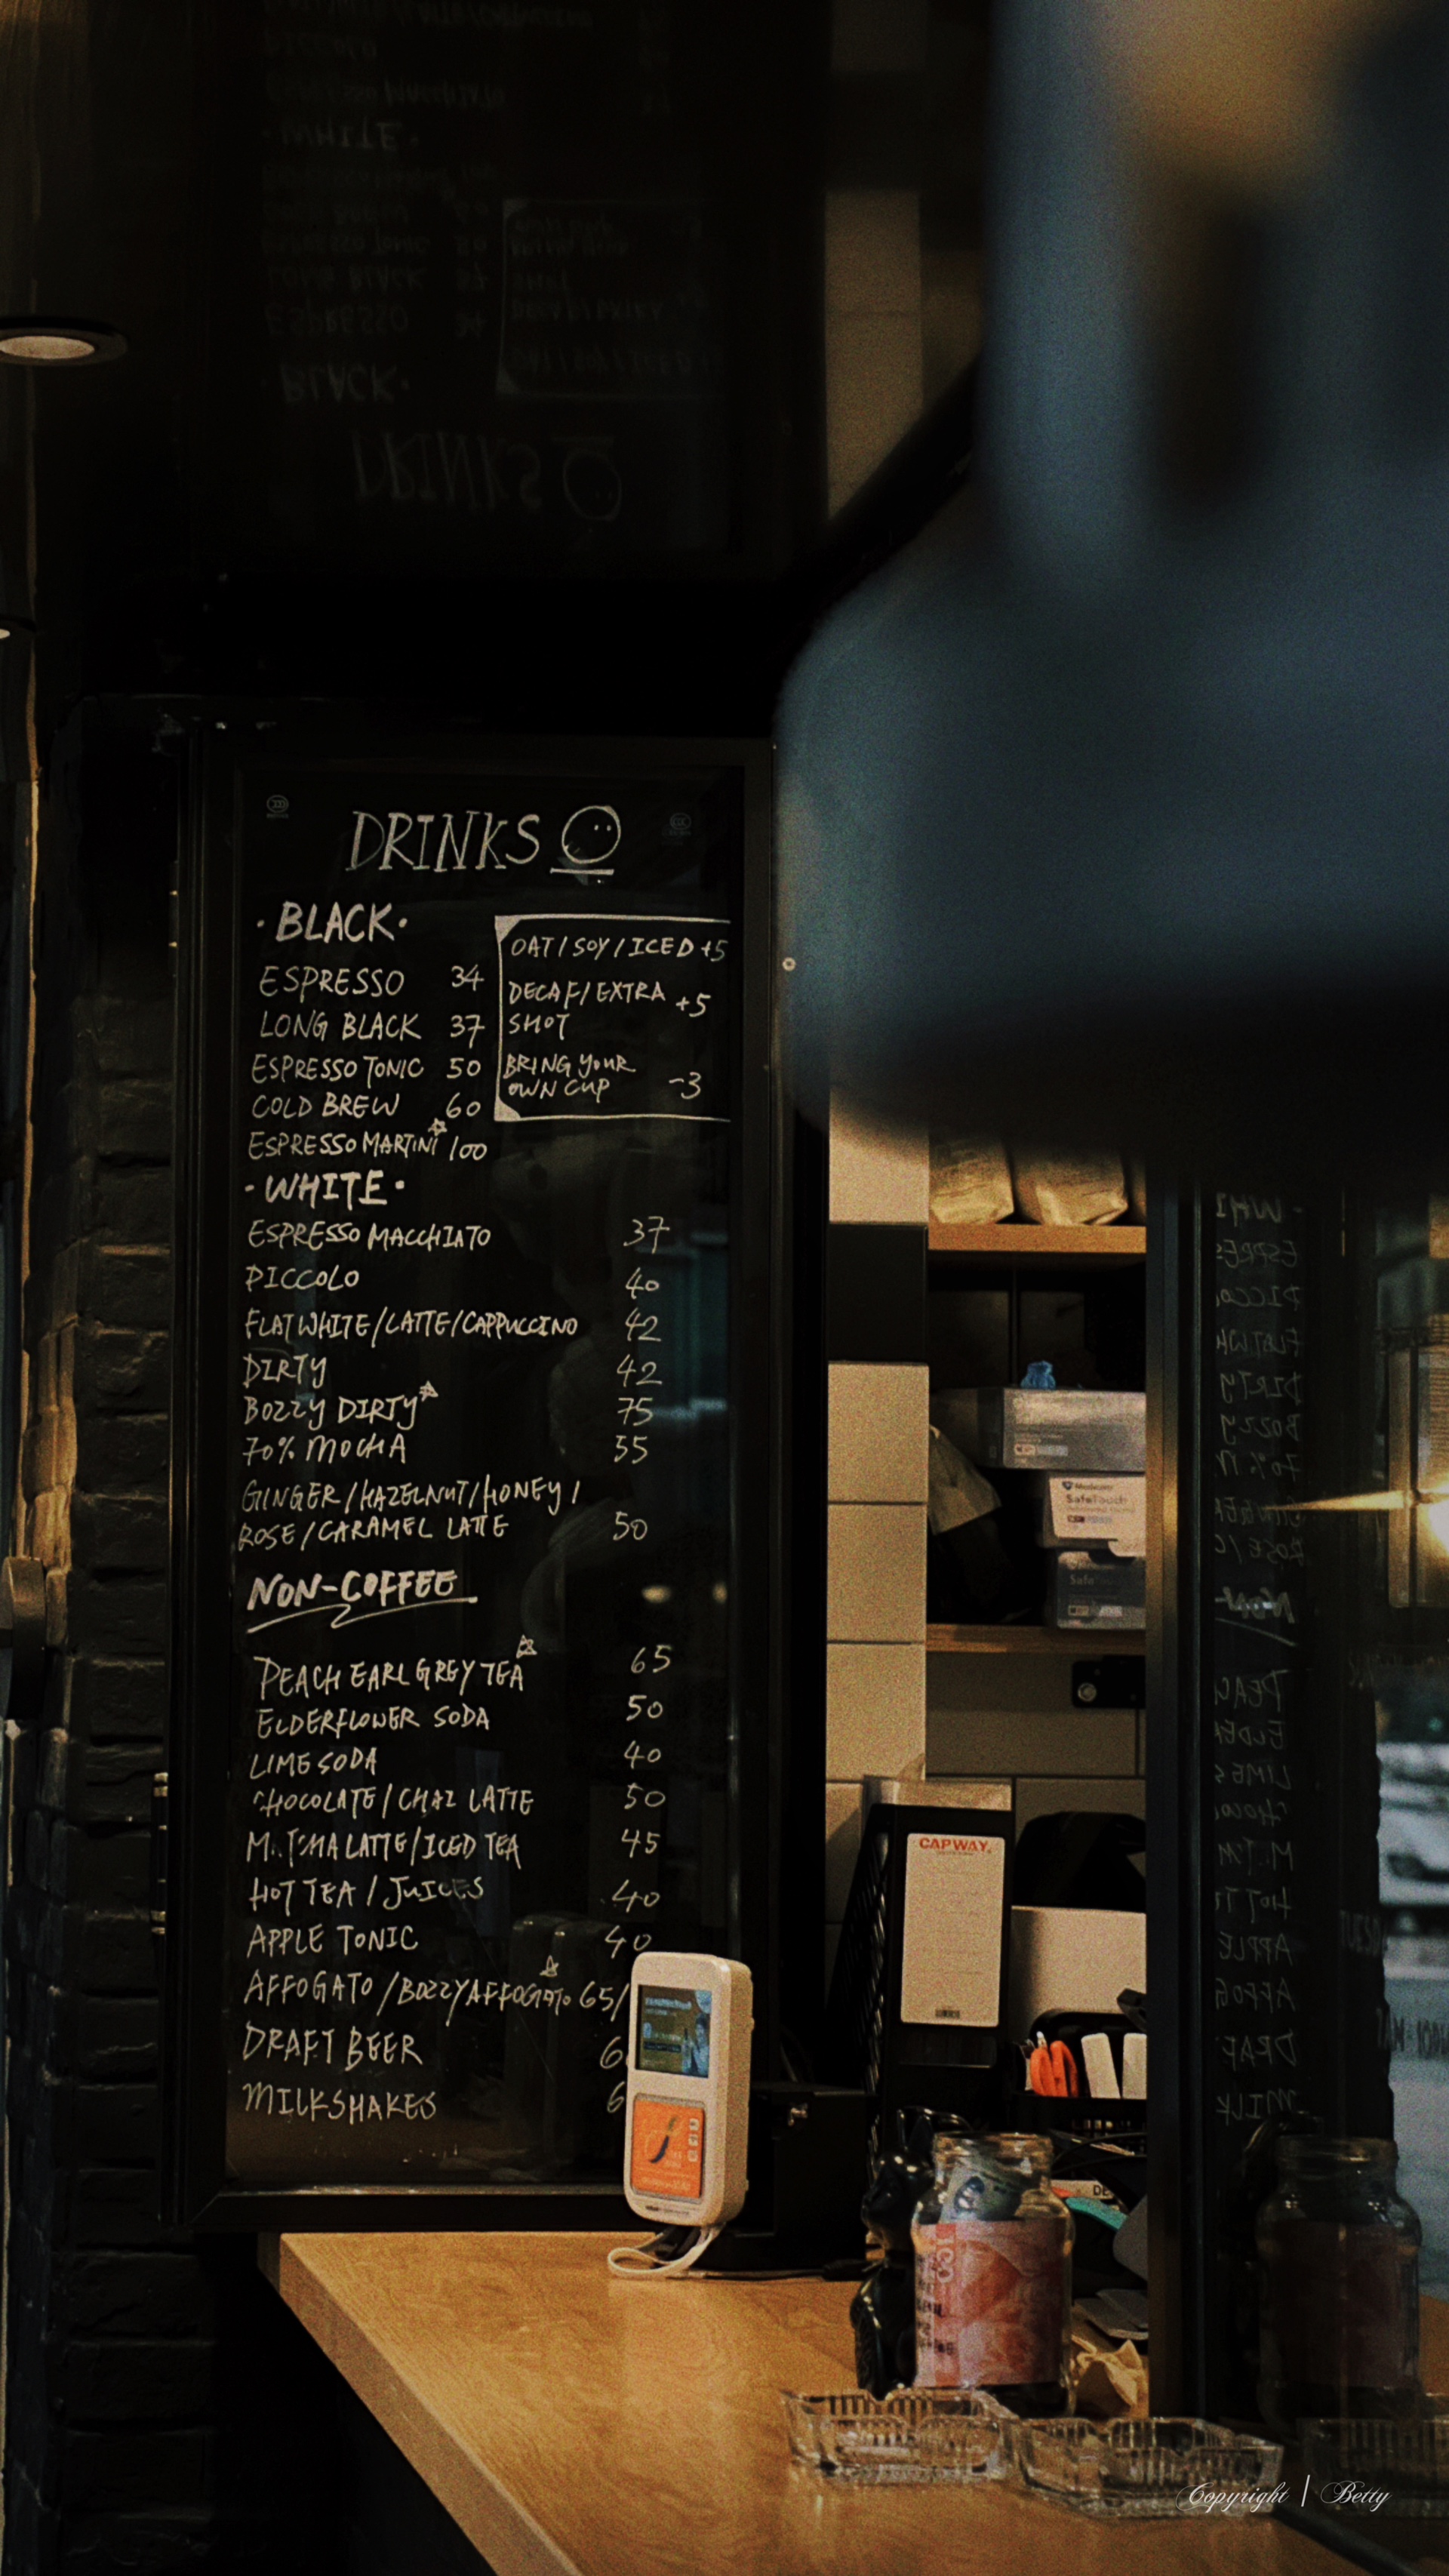 DRINKS
·BLACK·
ESPRESSO 34
LONG BLACK 37
ESPRESSO TONIC 50
COLD BREW 60
ESPRESSO MARTINI 100
OAT/SOY/ICED +5
DECAF/EXTRA +5
SHOT
BRING YOUR
OWN CUP -3
·WHITE·
ESPRESSO MACCHIATO 37
PICCOLO 40
FLAT WHITE/LATTE/CAPPUCCINO 42
DIRTY 42
BOZZY DIRTY 75
70% MOCHA 55
GINGER/HAZELNUT/HONEY/
ROSE/CARAMEL LATTE 50
NON-COFFEE
PEACH EARL GREY TEA 65
ELDERFLOWER SODA 50
LIME SODA 40
CHOCOLATE/CHAI LATTE 50
LATTE/ICED TEA 45
HOT TEA/JUICES 40
APPLE TONIC 40
AFFOGATO/BOZZY AFFOGATO 65/
DRAFT BEER 6
MILKSHAKES 6
SafeTouch
Safe
CAPWAY.
100
Copyright | Betty